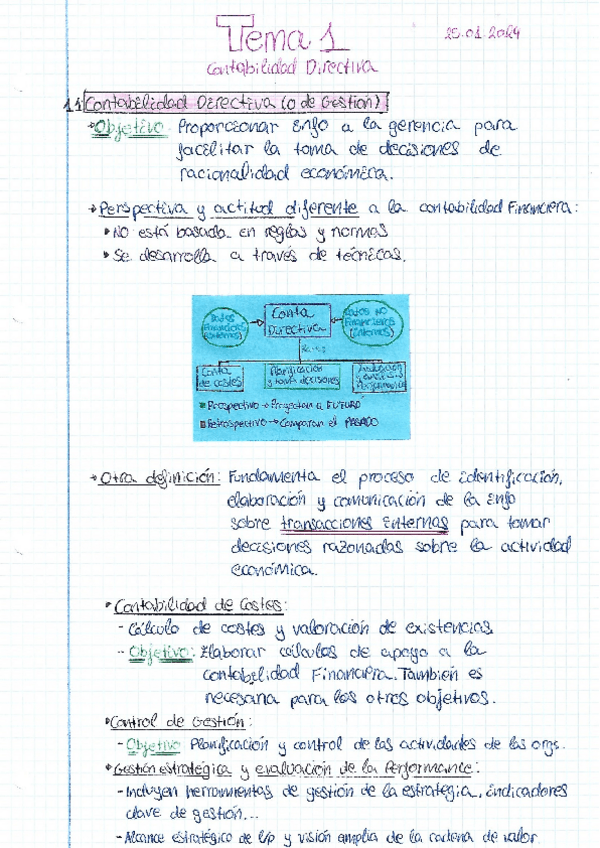 Tema 1
25.01.2024
Contabilidad Directiva
1.1 Contabilidad Directiva (o de Gestión)
Objetivo: Proporcionar Info a la gerencia para
facilitar la toma de decisiones de
racionalidad económica.
Perspectiva y actitud diferente a la contabilidad Financiera:
No está basada en reglas y normas
Se desarrolla a través de técnicas.
Datos Financieros (Internos)
Conta Directiva
Datos No Financieros (Internos)
Conta de costes
Planificación y toma decisiones
Evaluación Performance
Prospectivo → Proyectan a FUTURO
Retrospectivo → Comparan el PASADO
Otra definición: Fundamenta el proceso de identificación,
elaboración y comunicación de la Info
sobre transacciones Internas para tomar
decisiones razonadas sobre la actividad
económica.
Contabilidad de Costes:
- Cálculo de costes y valoración de existencias
- Objetivo: Elaborar cálculos de apoyo a la
contabilidad Financiera. También es
necesaria para los otros objetivos.
Control de Gestión:
- Objetivo Planificación y control de las actividades de las orgs.
Gestión estratégica y evaluación de la Performance:
- Incluyen herramientas de gestión de la estrategia, indicadores
clave de gestión...
- Alcance estratégico de l/p y visión amplia de la cadena de valor.